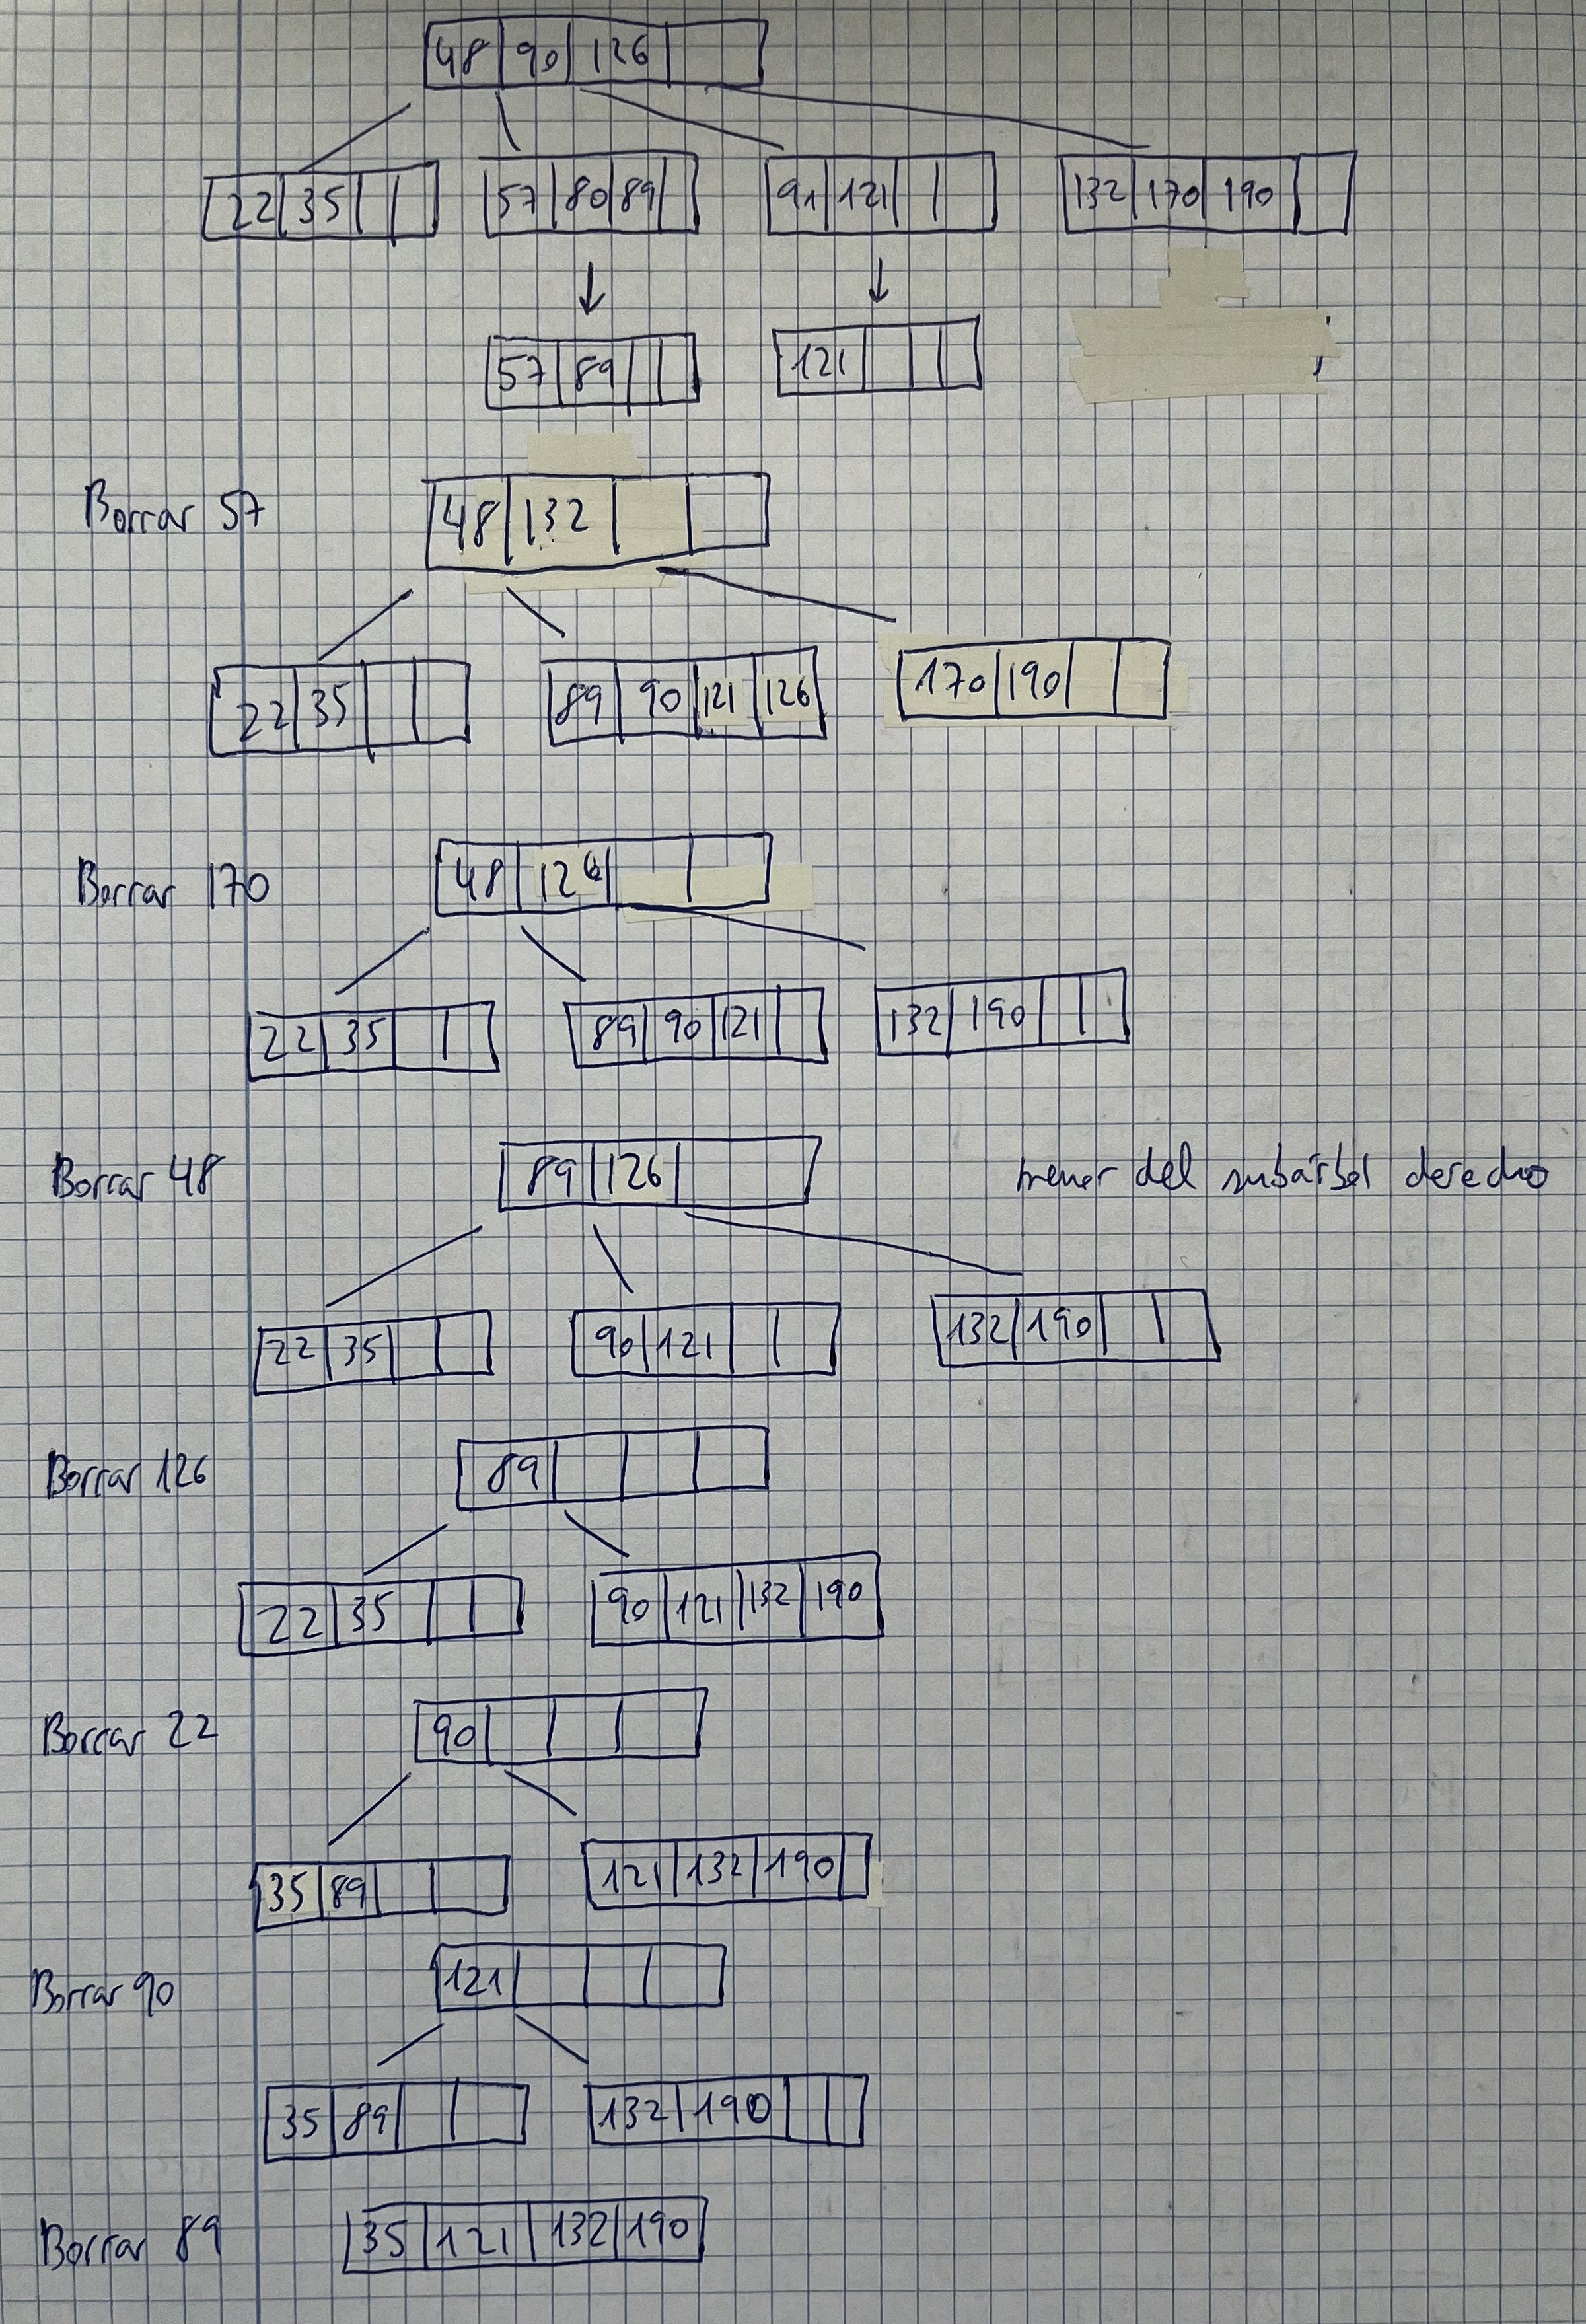 48 90 126
22 35 57 80 89 91 121 132 170 190
57 89 121
Borrar 57 48 132
22 35 89 90 121 126 170 190
Borrar 170 48 126
22 35 89 90 121 132 190
Borrar 48 89 126 menor del subárbol derecho
22 35 90 121 132 190
Borrar 126 89
22 35 90 121 132 190
Borrar 22 90
35 89 121 132 190
Borrar 90 121
35 89 132 190
Borrar 89 35 121 132 190